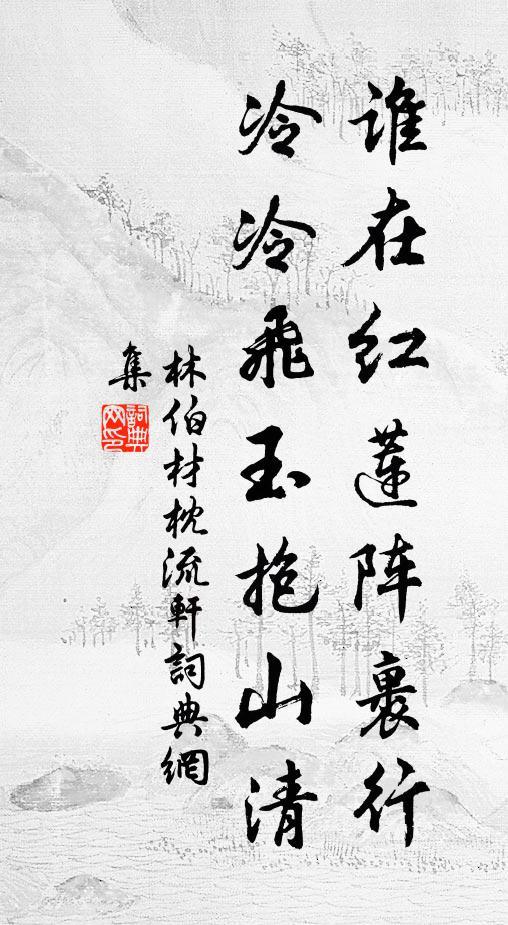 谁在红莲阵裹行
冷冷飛玉抱山清
林伯材枕流軒詞典網
集
詞典
网印